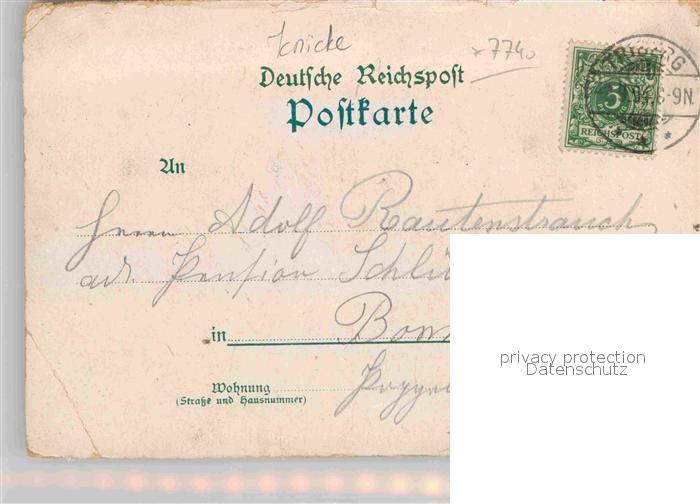 Knicke
*7740
Deutsche Reichspost
Postkarte
TRIBERG
6-9N
5
REICHSPOST
An
Herrn Adolf Rautenstrauch
adr. Pension Schlü
in Bonn
Poppe
Wohnung
(Straße und Hausnummer)
privacy protection
Datenschutz